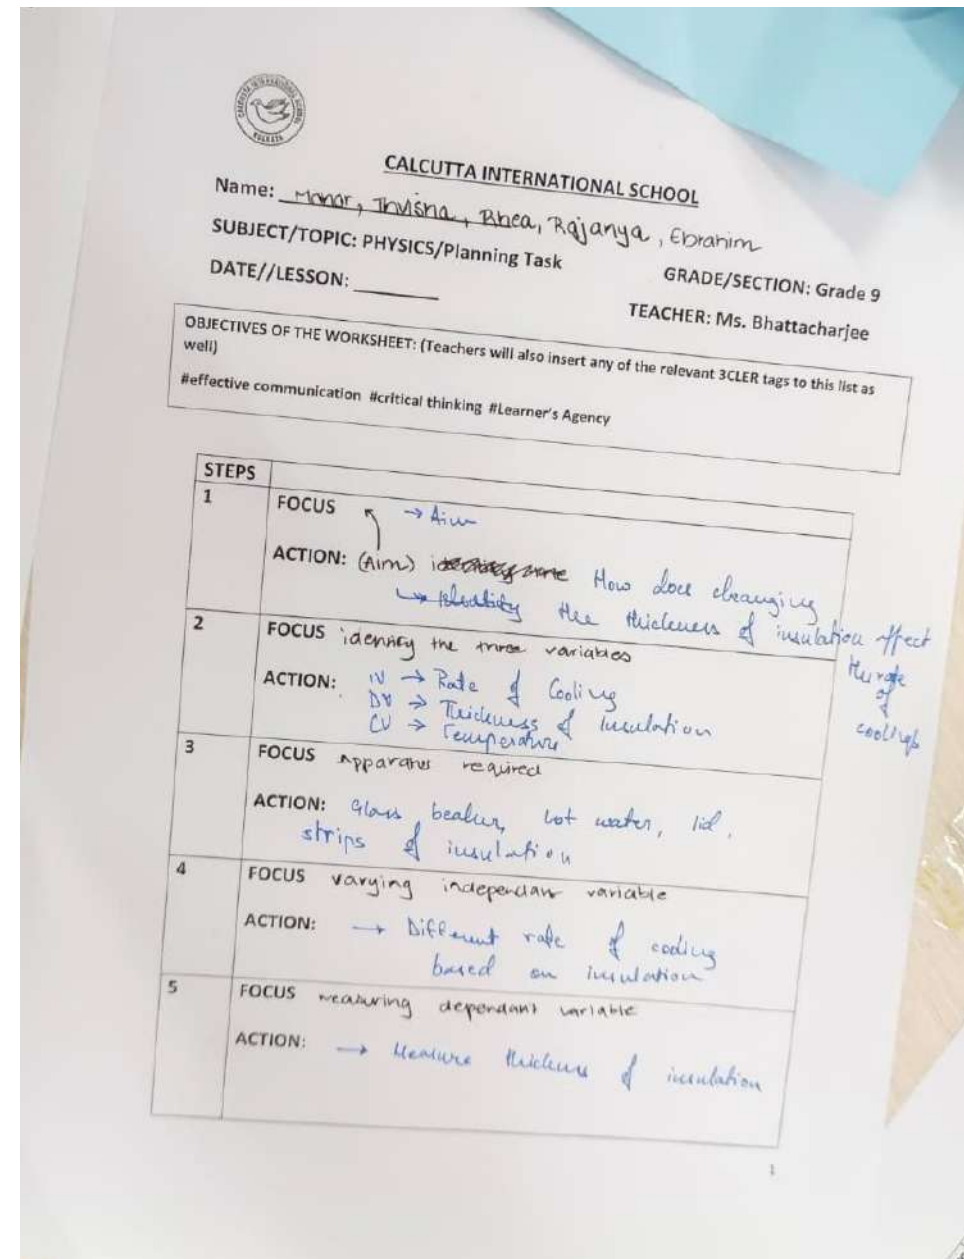 CALCUTTA INTERNATIONAL SCHOOL
KOLKATA
CALCUTTA INTERNATIONAL SCHOOL
Name: Manar, Thvisha, Rhea, Rajanya, Ebrahim
SUBJECT/TOPIC: PHYSICS/Planning Task
GRADE/SECTION: Grade 9
DATE//LESSON:
TEACHER: Ms. Bhattacharjee
OBJECTIVES OF THE WORKSHEET: (Teachers will also insert any of the relevant 3CLER tags to this list as
well)
#effective communication #critical thinking #Learner's Agency
STEPS
1
FOCUS → Aim
ACTION: (Aim) How does changing
the thickness of insulation effect
the rate
of
cooling
2
FOCUS identify the three variables
ACTION: IV → Rate of Cooling
DV → Thickness of insulation
CV → Temperature
3
FOCUS Apparatus required
ACTION: Glass beaker, hot water, lid,
strips of insulation
4
FOCUS varying independant variable
ACTION: → Different rate of cooling
based on insulation
5
FOCUS measuring dependant variable
ACTION: → Measure thickness of insulation
1